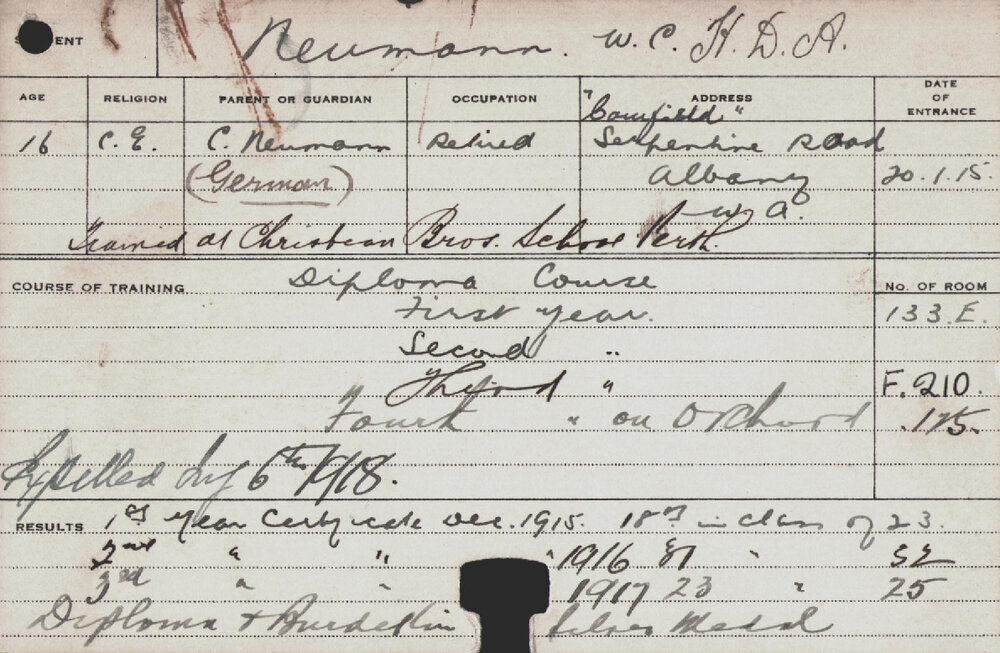 STUDENT Neumann. W. C. H. D. A.
AGE RELIGION PARENT OR GUARDIAN OCCUPATION ADDRESS DATE OF ENTRANCE
16 C. E. C. Neumann Retired Serpentine Road
(German) Albany 20.1.15.
W. A.
Trained at Christian Bros. School Perth.
COURSE OF TRAINING Diploma Course No. OF ROOM
First year. 133.E.
Second "
Third " F. 210.
Fourth " on Orchard 175.
Expelled July 6th 1918.
RESULTS 1st Year Certificate Dec. 1915. 18th in class of 23.
2nd " " " 1916 " 32
3rd " " 1917 23 " 25
Diploma + Burdekin Silver Medal